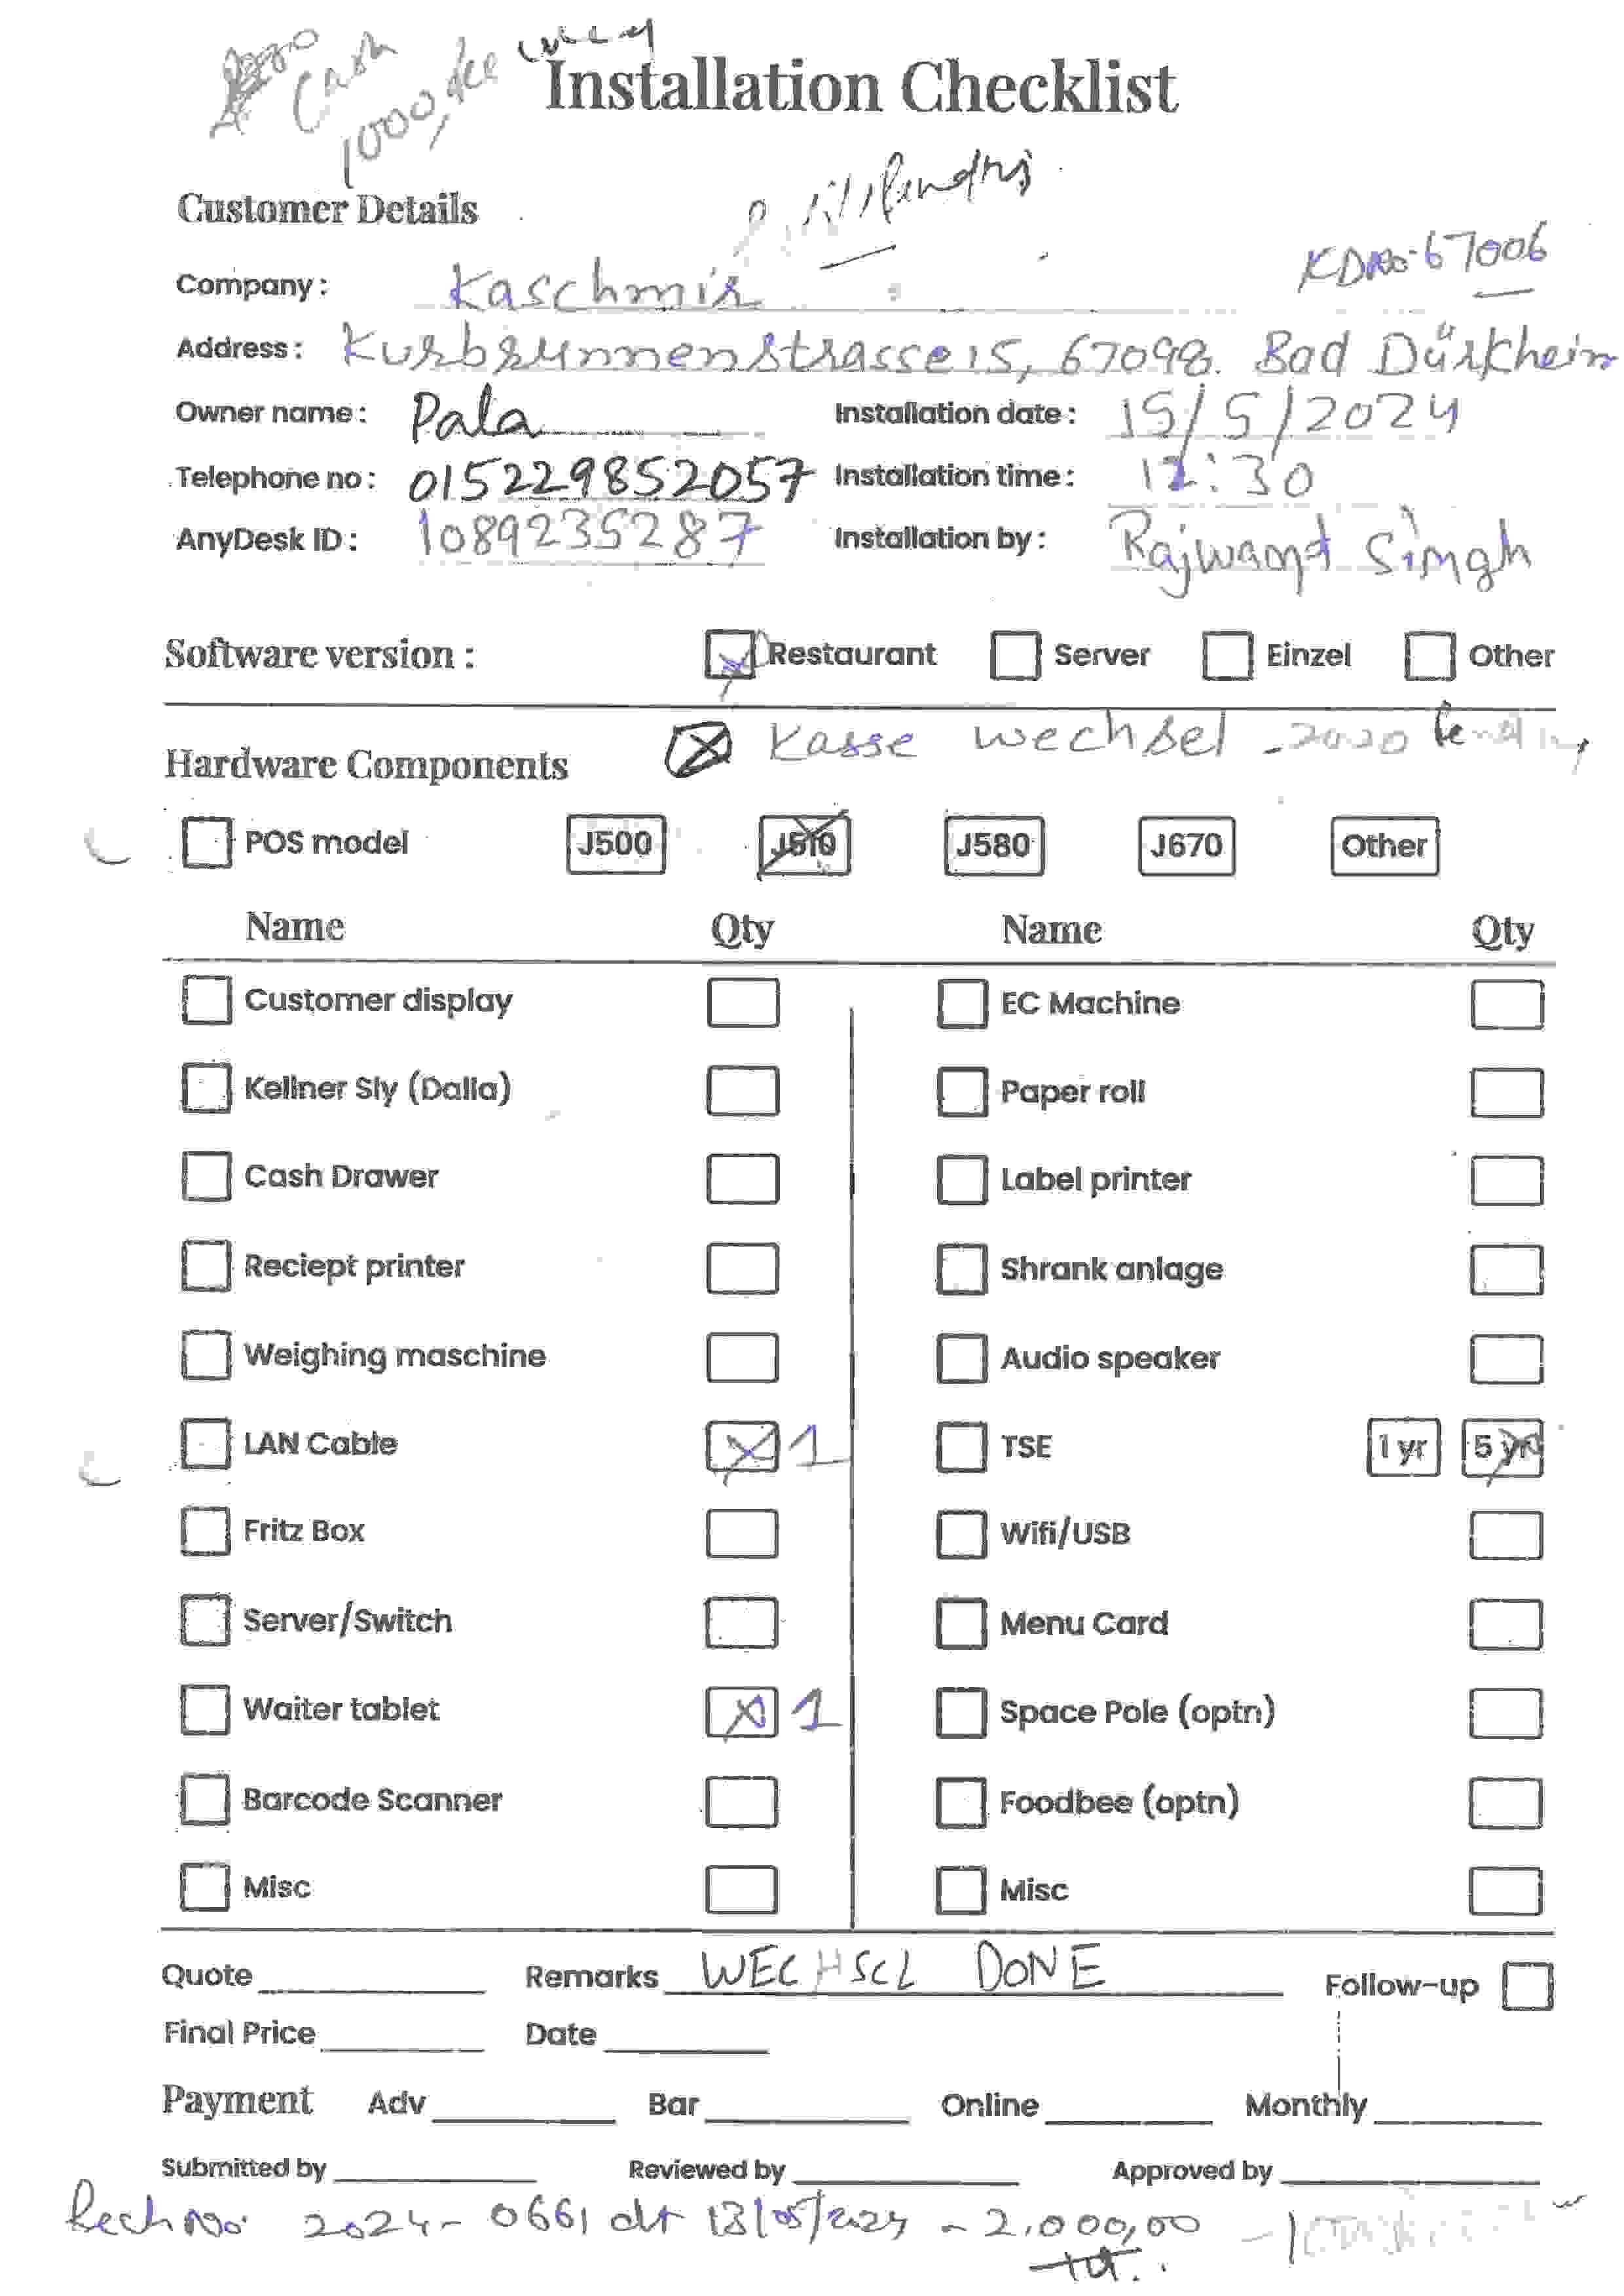 Cash
1000,
Installation Checklist
Customer Details
KDNo-67006
Company: Kaschmir
Address: Kurbrunnenstrasse 15, 67098 Bad Dürkheim
Owner name: Pala Installation date: 15/5/2024
Telephone no: 015229852057 Installation time: 12:30
AnyDesk ID: 1089235287 Installation by: Rajwant Singh
Software version: Restaurant Server Einzel Other
Kasse wechsel - 2020
Hardware Components
POS model J500 J510 J580 J670 Other
Name Qty Name Qty
Customer display EC Machine
Kellner Sly (Dalla) Paper roll
Cash Drawer Label printer
Reciept printer Shrank anlage
Weighing maschine Audio speaker
LAN Cable X 1 TSE 1 yr 5 yr
Fritz Box Wifi/USB
Server/Switch Menu Card
Waiter tablet X 1 Space Pole (optn)
Barcode Scanner Foodbee (optn)
Misc Misc
Quote Remarks WECHSEL DONE Follow-up
Final Price Date
Payment Adv Bar Online Monthly
Submitted by Reviewed by Approved by
Rech No 2024-0661 dt 13/05/2024 - 2.000,00